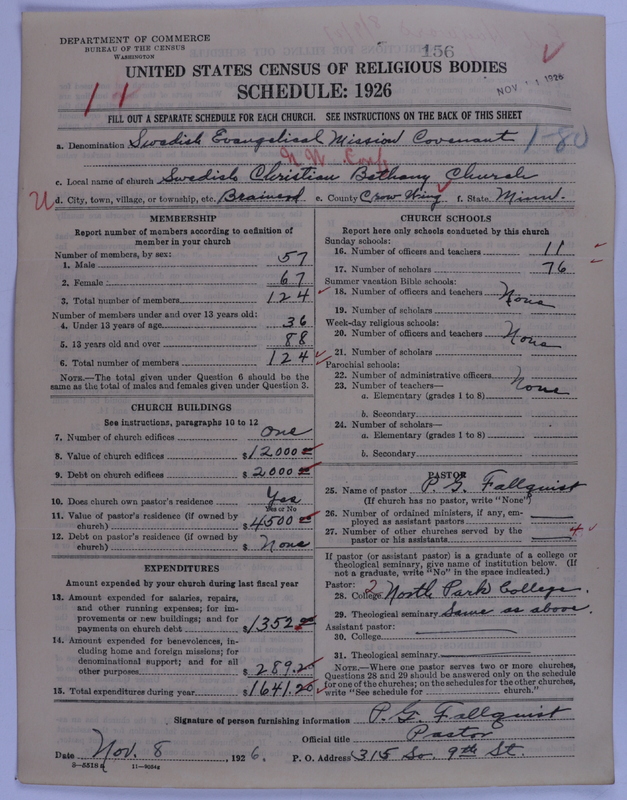 DEPARTMENT OF COMMERCE
BUREAU OF THE CENSUS
WASHINGTON
156
NOV 11 1926
UNITED STATES CENSUS OF RELIGIOUS BODIES
SCHEDULE: 1926
FILL OUT A SEPARATE SCHEDULE FOR EACH CHURCH. SEE INSTRUCTIONS ON THE BACK OF THIS SHEET
a. Denomination Swedish Evangelical Mission Covenant 1-80
N W Conf
c. Local name of church Swedish Christian Bethany Church
d. City, town, village, or township, etc. Brainerd e. County Crow Wing f. State Minn.
MEMBERSHIP
Report number of members according to definition of
member in your church
Number of members, by sex:
1. Male 57
2. Female 67
3. Total number of members 124
Number of members under and over 13 years old:
4. Under 13 years of age 36
5. 13 years old and over 88
6. Total number of members 124
NOTE.—The total given under Question 6 should be the
same as the total of males and females given under Question 3.
CHURCH BUILDINGS
See instructions, paragraphs 10 to 12
7. Number of church edifices One
8. Value of church edifices $12000
9. Debt on church edifices $2000
10. Does church own pastor's residence Yes
Yes or No
11. Value of pastor's residence (if owned by
church) $4500
12. Debt on pastor's residence (if owned by
church) $ None
EXPENDITURES
Amount expended by your church during last fiscal year
13. Amount expended for salaries, repairs,
and other running expenses; for im-
provements or new buildings; and for
payments on church debt $1352
14. Amount expended for benevolences, in-
cluding home and foreign missions; for
denominational support; and for all
other purposes $289.25
15. Total expenditures during year $1641.25
CHURCH SCHOOLS
Report here only schools conducted by this church
Sunday schools:
16. Number of officers and teachers 11
17. Number of scholars 76
Summer vacation Bible schools:
18. Number of officers and teachers None
19. Number of scholars
Week-day religious schools:
20. Number of officers and teachers None
21. Number of scholars
Parochial schools:
22. Number of administrative officers None
23. Number of teachers—
a. Elementary (grades 1 to 8)
b. Secondary
24. Number of scholars—
a. Elementary (grades 1 to 8)
b. Secondary
PASTOR
25. Name of pastor P. G. Fallquist
(If church has no pastor, write "None")
26. Number of ordained ministers, if any, em-
ployed as assistant pastors
27. Number of other churches served by the
pastor or his assistants 4
If pastor (or assistant pastor) is a graduate of a college or
theological seminary, give name of institution below. (If
not a graduate, write "No" in the space indicated.)
Pastor:
28. College 2 North Park College.
29. Theological seminary Same as above.
Assistant pastor:
30. College
31. Theological seminary
NOTE.—Where one pastor serves two or more churches,
Questions 28 and 29 should be answered only on the schedule
for one of the churches; on the schedules for the other churches,
write "See schedule for church."
Signature of person furnishing information P. G. Fallquist
Official title Pastor
Date Nov. 8, 1926. P. O. Address 315 So. 9th St.